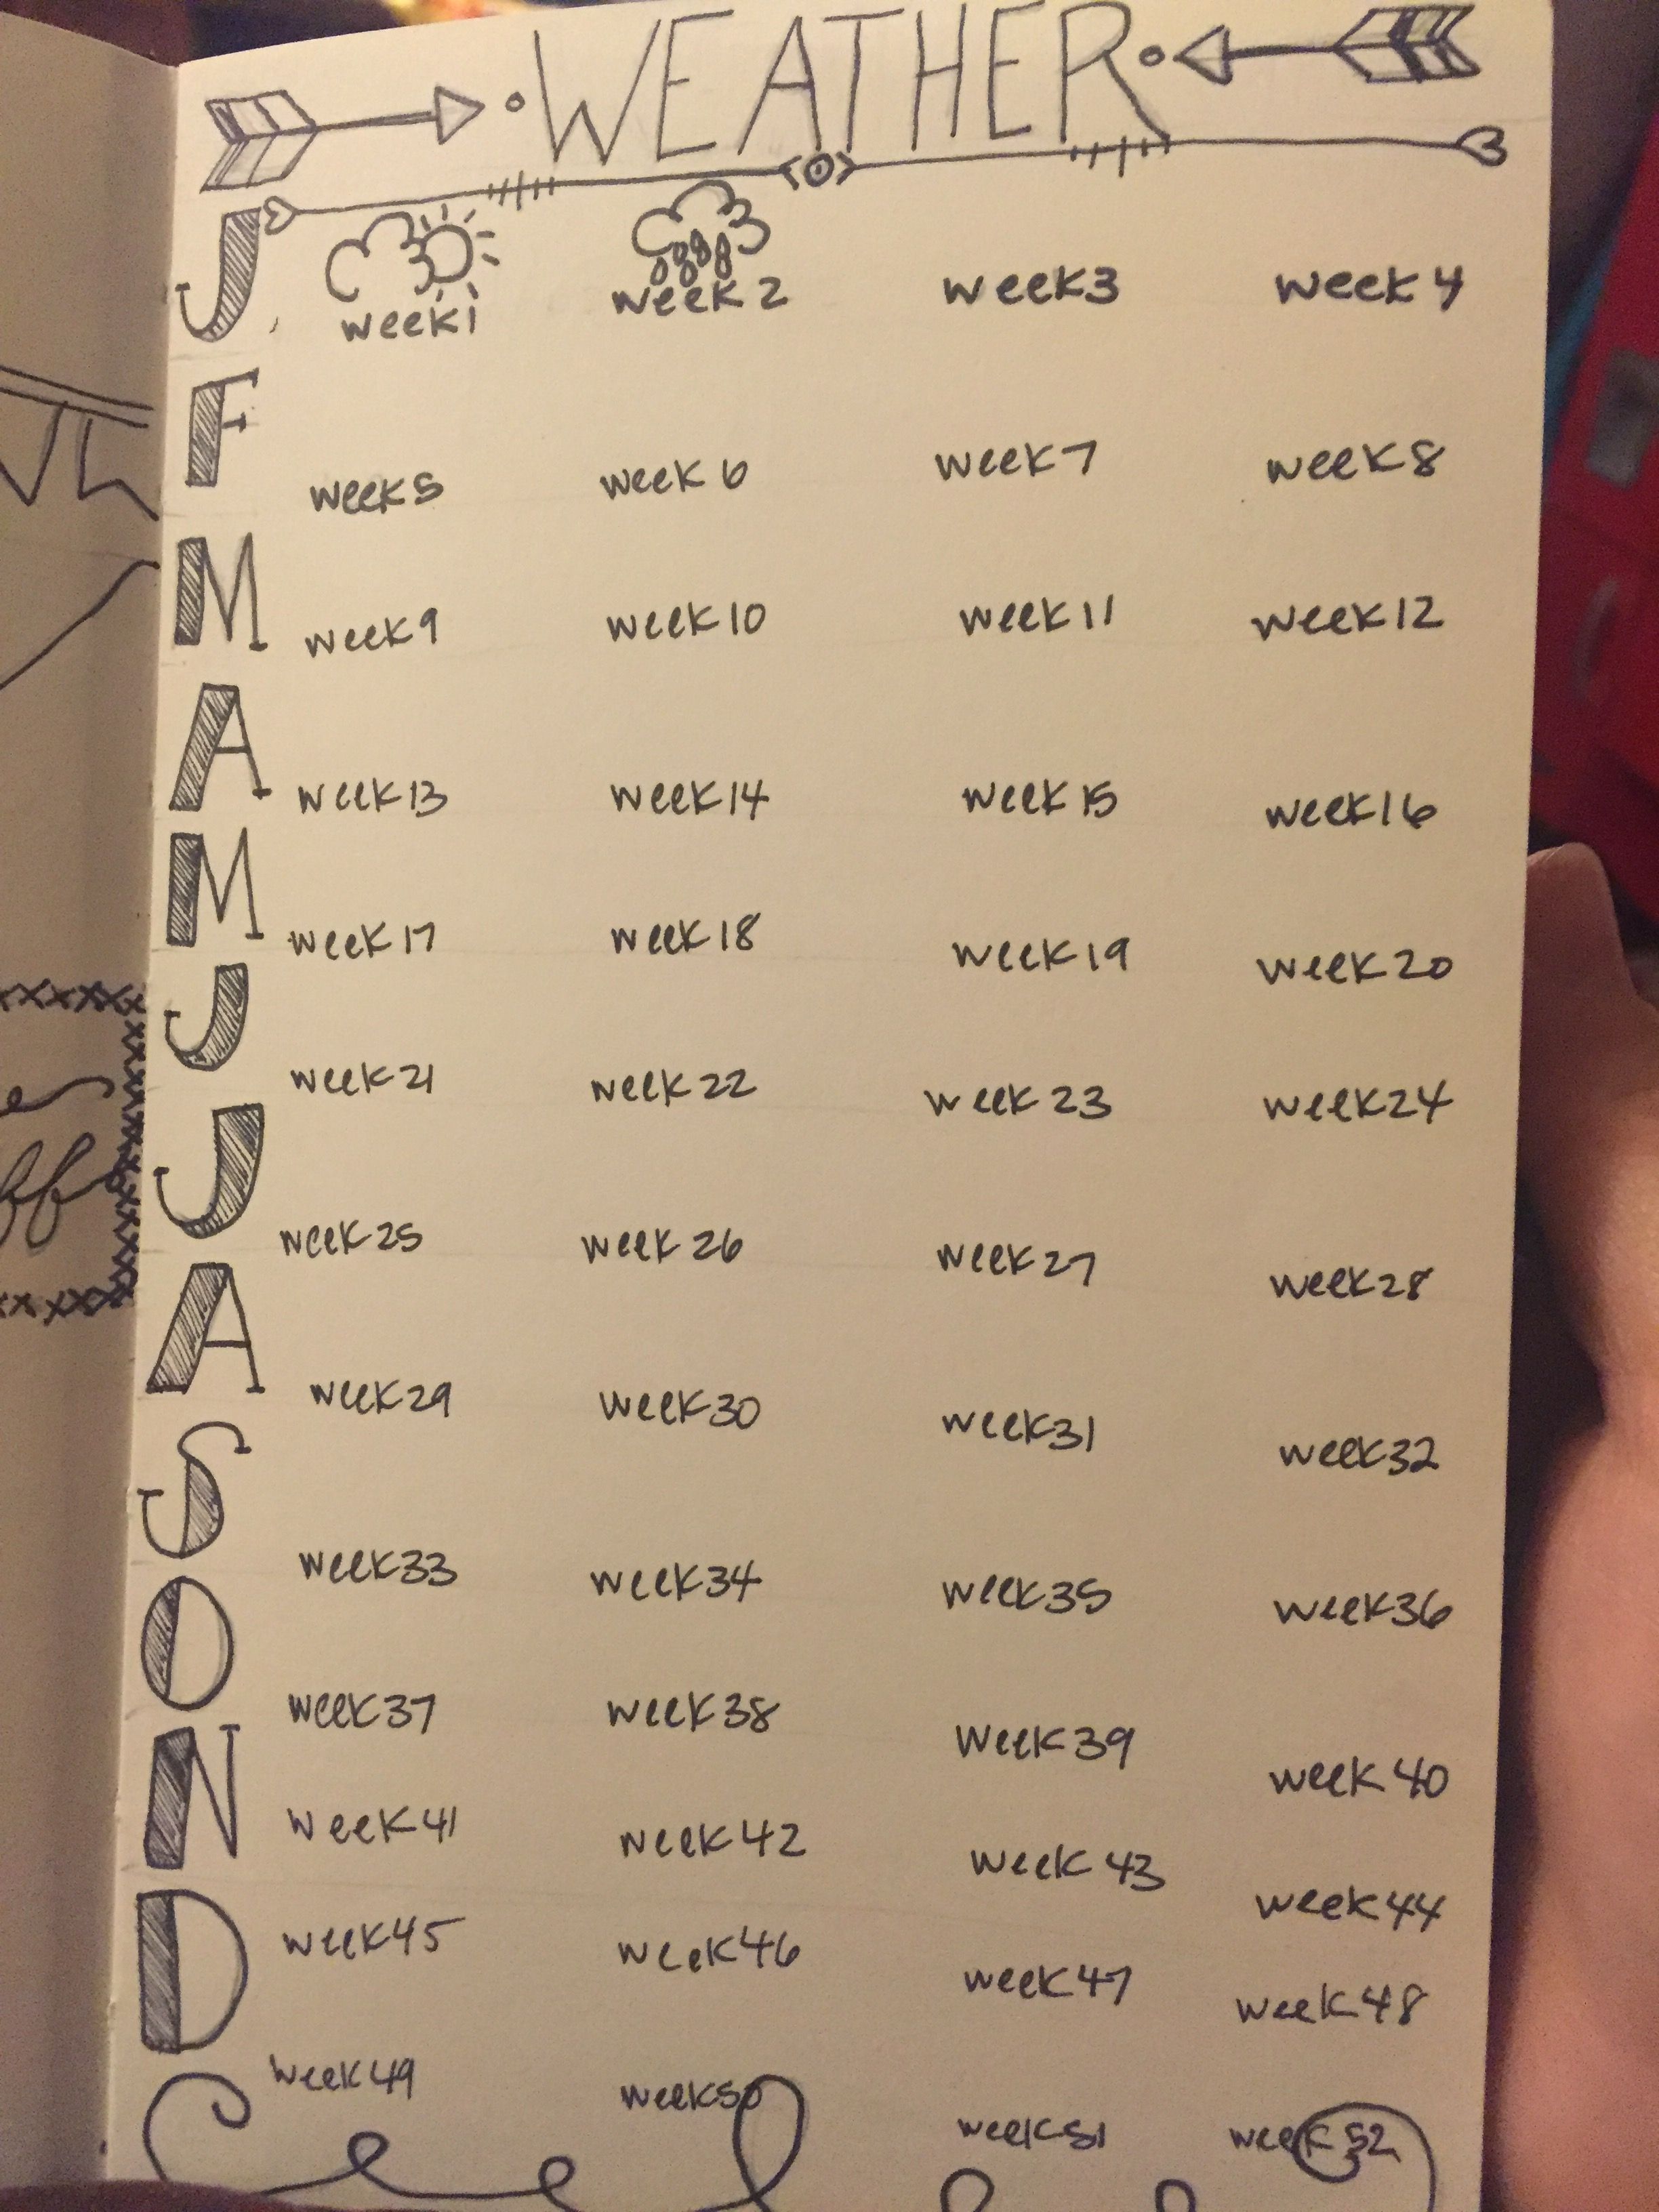 WEATHER
J week1 week 2 week3 week 4
F week5 week 6 week7 week8
M week9 week10 week11 week12
A week13 week14 week15 week16
M week17 week18 week19 week20
J week21 week22 week23 week24
J week25 week26 week27 week28
A week29 week30 week31 week32
S week33 week34 week35 week36
O week37 week38 week39 week40
N week41 week42 week43 week44
D week45 week46 week47 week48
week49 week50 week51 week52